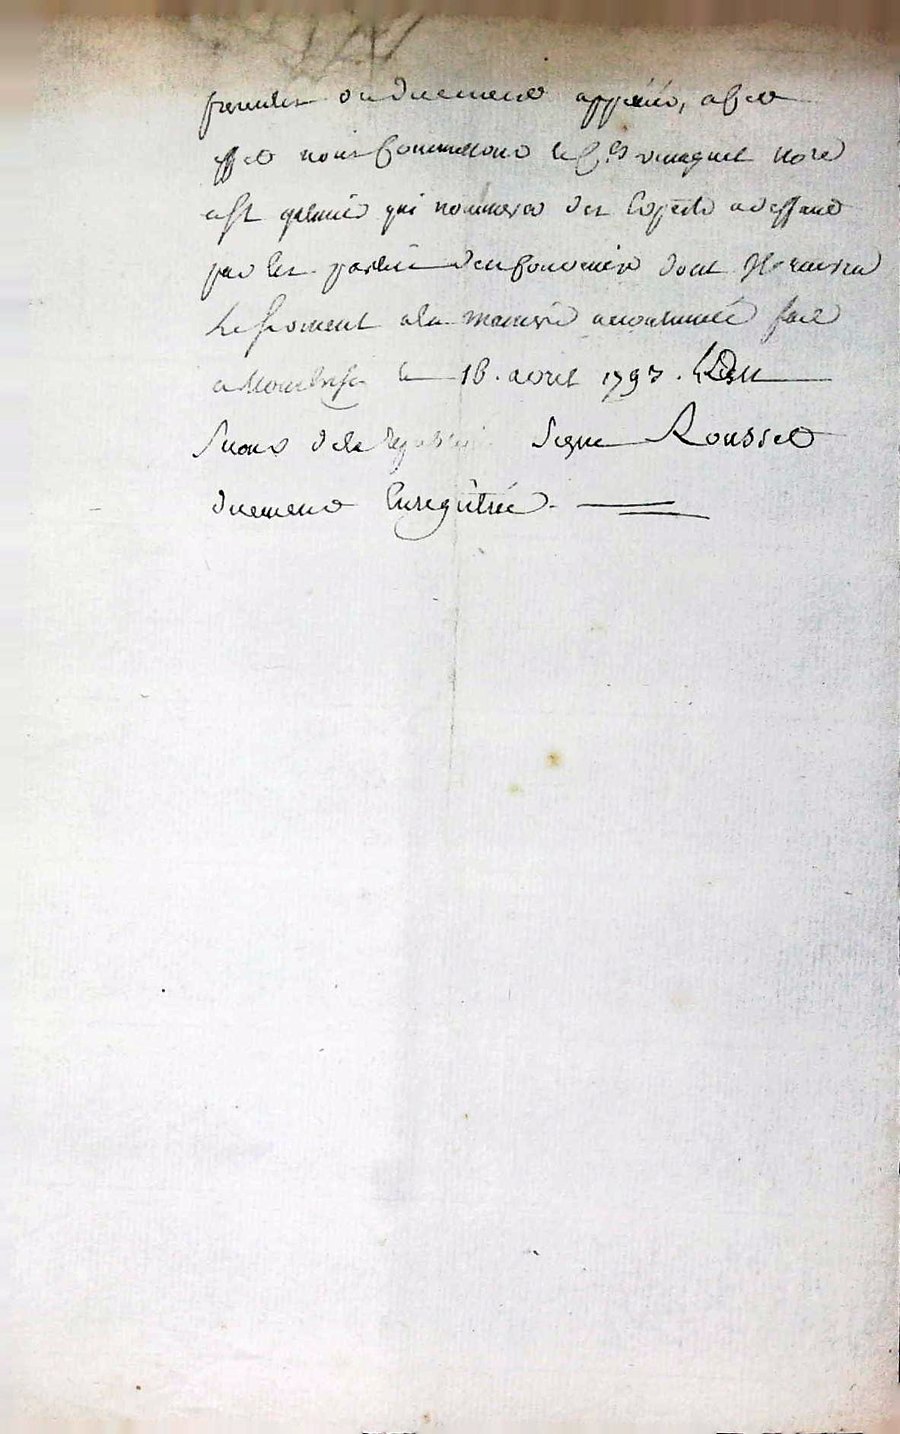 presentes ou duement appellés, a cet
effet nous commettons le C.en nore
a St galmié qui nommera des Experts a deffaut
par les parties d'en convenir dont Il recevra
le serment a la maniere accoutumée fait
a Montbrison le 16. avril 1793. L'an
second de la republique Signé Rousset
duement Enregistrée.